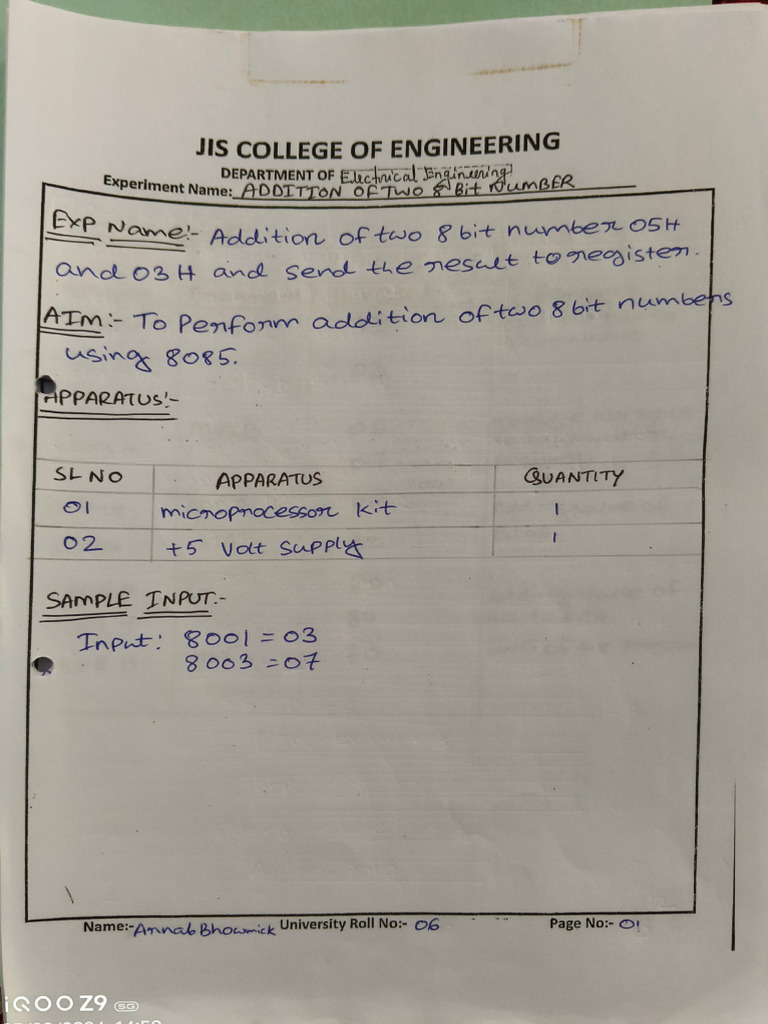 JIS COLLEGE OF ENGINEERING
DEPARTMENT OF Electrical Engineering
Experiment Name: ADDITION OF TWO 8 Bit NUMBER
EXP Name:- Addition of two 8 bit number 05H
and 03H and send the result to register.
AIM:- To Perform addition of two 8 bit numbers
using 8085.
APPARATUS:-
SL NO APPARATUS QUANTITY
01 microprocessor kit 1
02 +5 Volt Supply 1
SAMPLE INPUT:-
Input: 8001 = 03
8003 = 07
Name:- Arnab Bhowmick University Roll No:- 06 Page No:- 01
iQOO Z9 5G